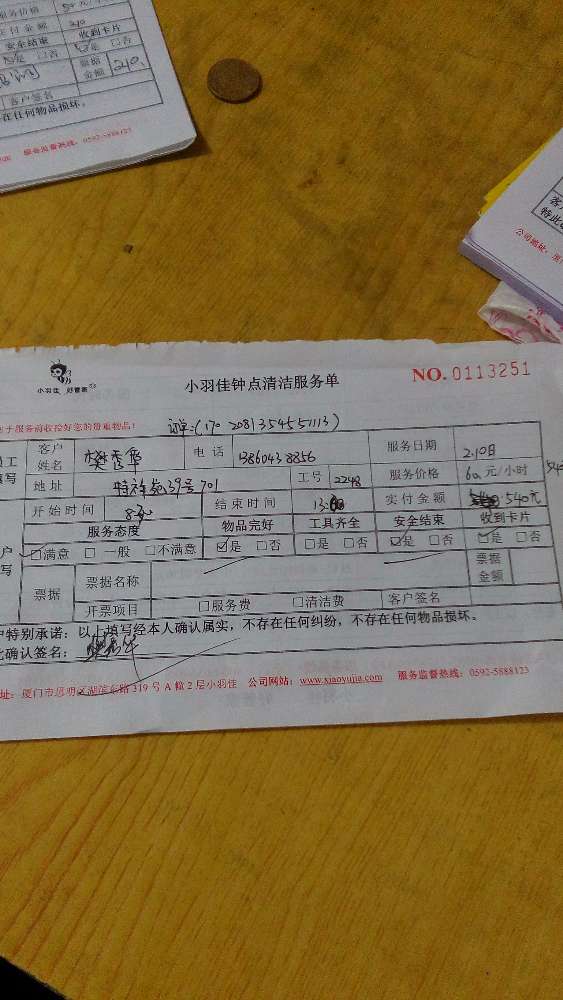 务价格
实付金额 210
安全结束 收到卡片
是 □否 是 □否
票据金额 210.
客户签名
存在任何物品损坏。
服务监督热线：0592-5888123
公司地址：
小羽佳 好管家
小羽佳钟点清洁服务单
NO. 0113251
于服务前收拾好您的贵重物品！
客户姓名 樊秀华 电话 13860438856 服务日期 2.10日
地址 特祥苑39号701 工号 2248 服务价格 60元/小时
开始时间 结束时间 实付金额 540元
服务态度 物品完好 工具齐全 安全结束 收到卡片
□满意 □一般 □不满意 ☑是 □否 □是 □否 □是 □否 □是 □否
票据 票据名称 票据金额
开票项目 □服务费 □清洁费 客户签名
户特别承诺：以上填写经本人确认属实，不存在任何纠纷，不存在任何物品损坏。
此确认签名：
址：厦门市思明区湖滨东路 319 号 A 幢 2 层小羽佳 公司网站：www.xiaoyujia.com 服务监督热线：0592-5888123